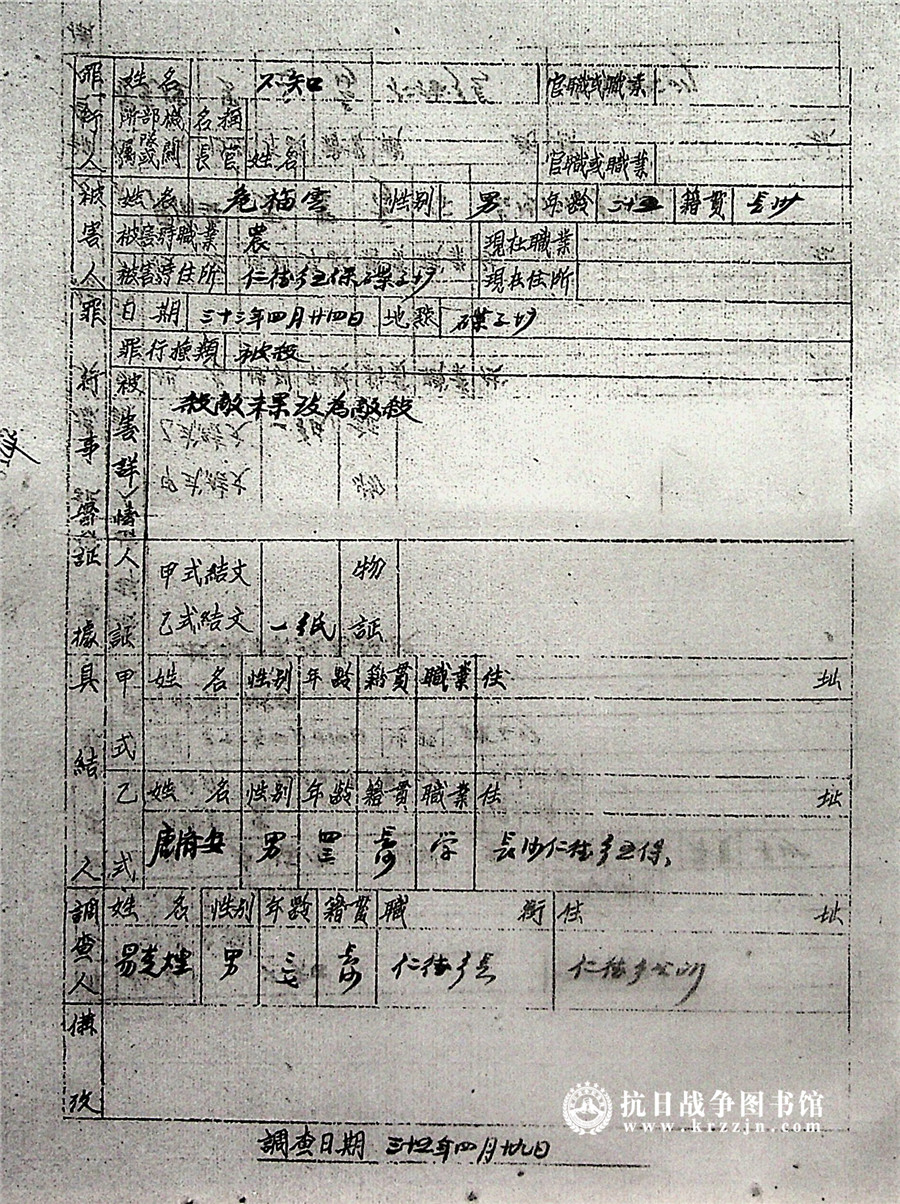 罪行人 姓名 不知 官職或職業
所屬部隊或機關 名稱
長官姓名 官職或職業
被害人 姓名 危梅雲 性别 男 年齡 三十五 籍貫 長沙
被害時職業 農 現在職業
被害時住所 仁 鄉五保 磔子坳 現在住所
罪行事實 日期 三十三年四月廿四日 地點 磔子坳
罪行撫類 被殺
被害詳情 殺敵未果改為敵殺
証據 人証 甲式結文 物証
乙式結文 一紙
具結人 甲式 姓名 性别 年齡 籍貫 職業 住址
乙式 姓名 性别 年齡 籍貫 職業 住址
男 長沙 学 長沙仁 鄉五保
調查人 姓名 性别 年齡 籍貫 職衡 住址
易克 男 長沙 仁 鄉長 仁 鄉公所
備攷
調查日期 三十五年四月廿九日
抗日战争图书馆
www.krzzjn.com